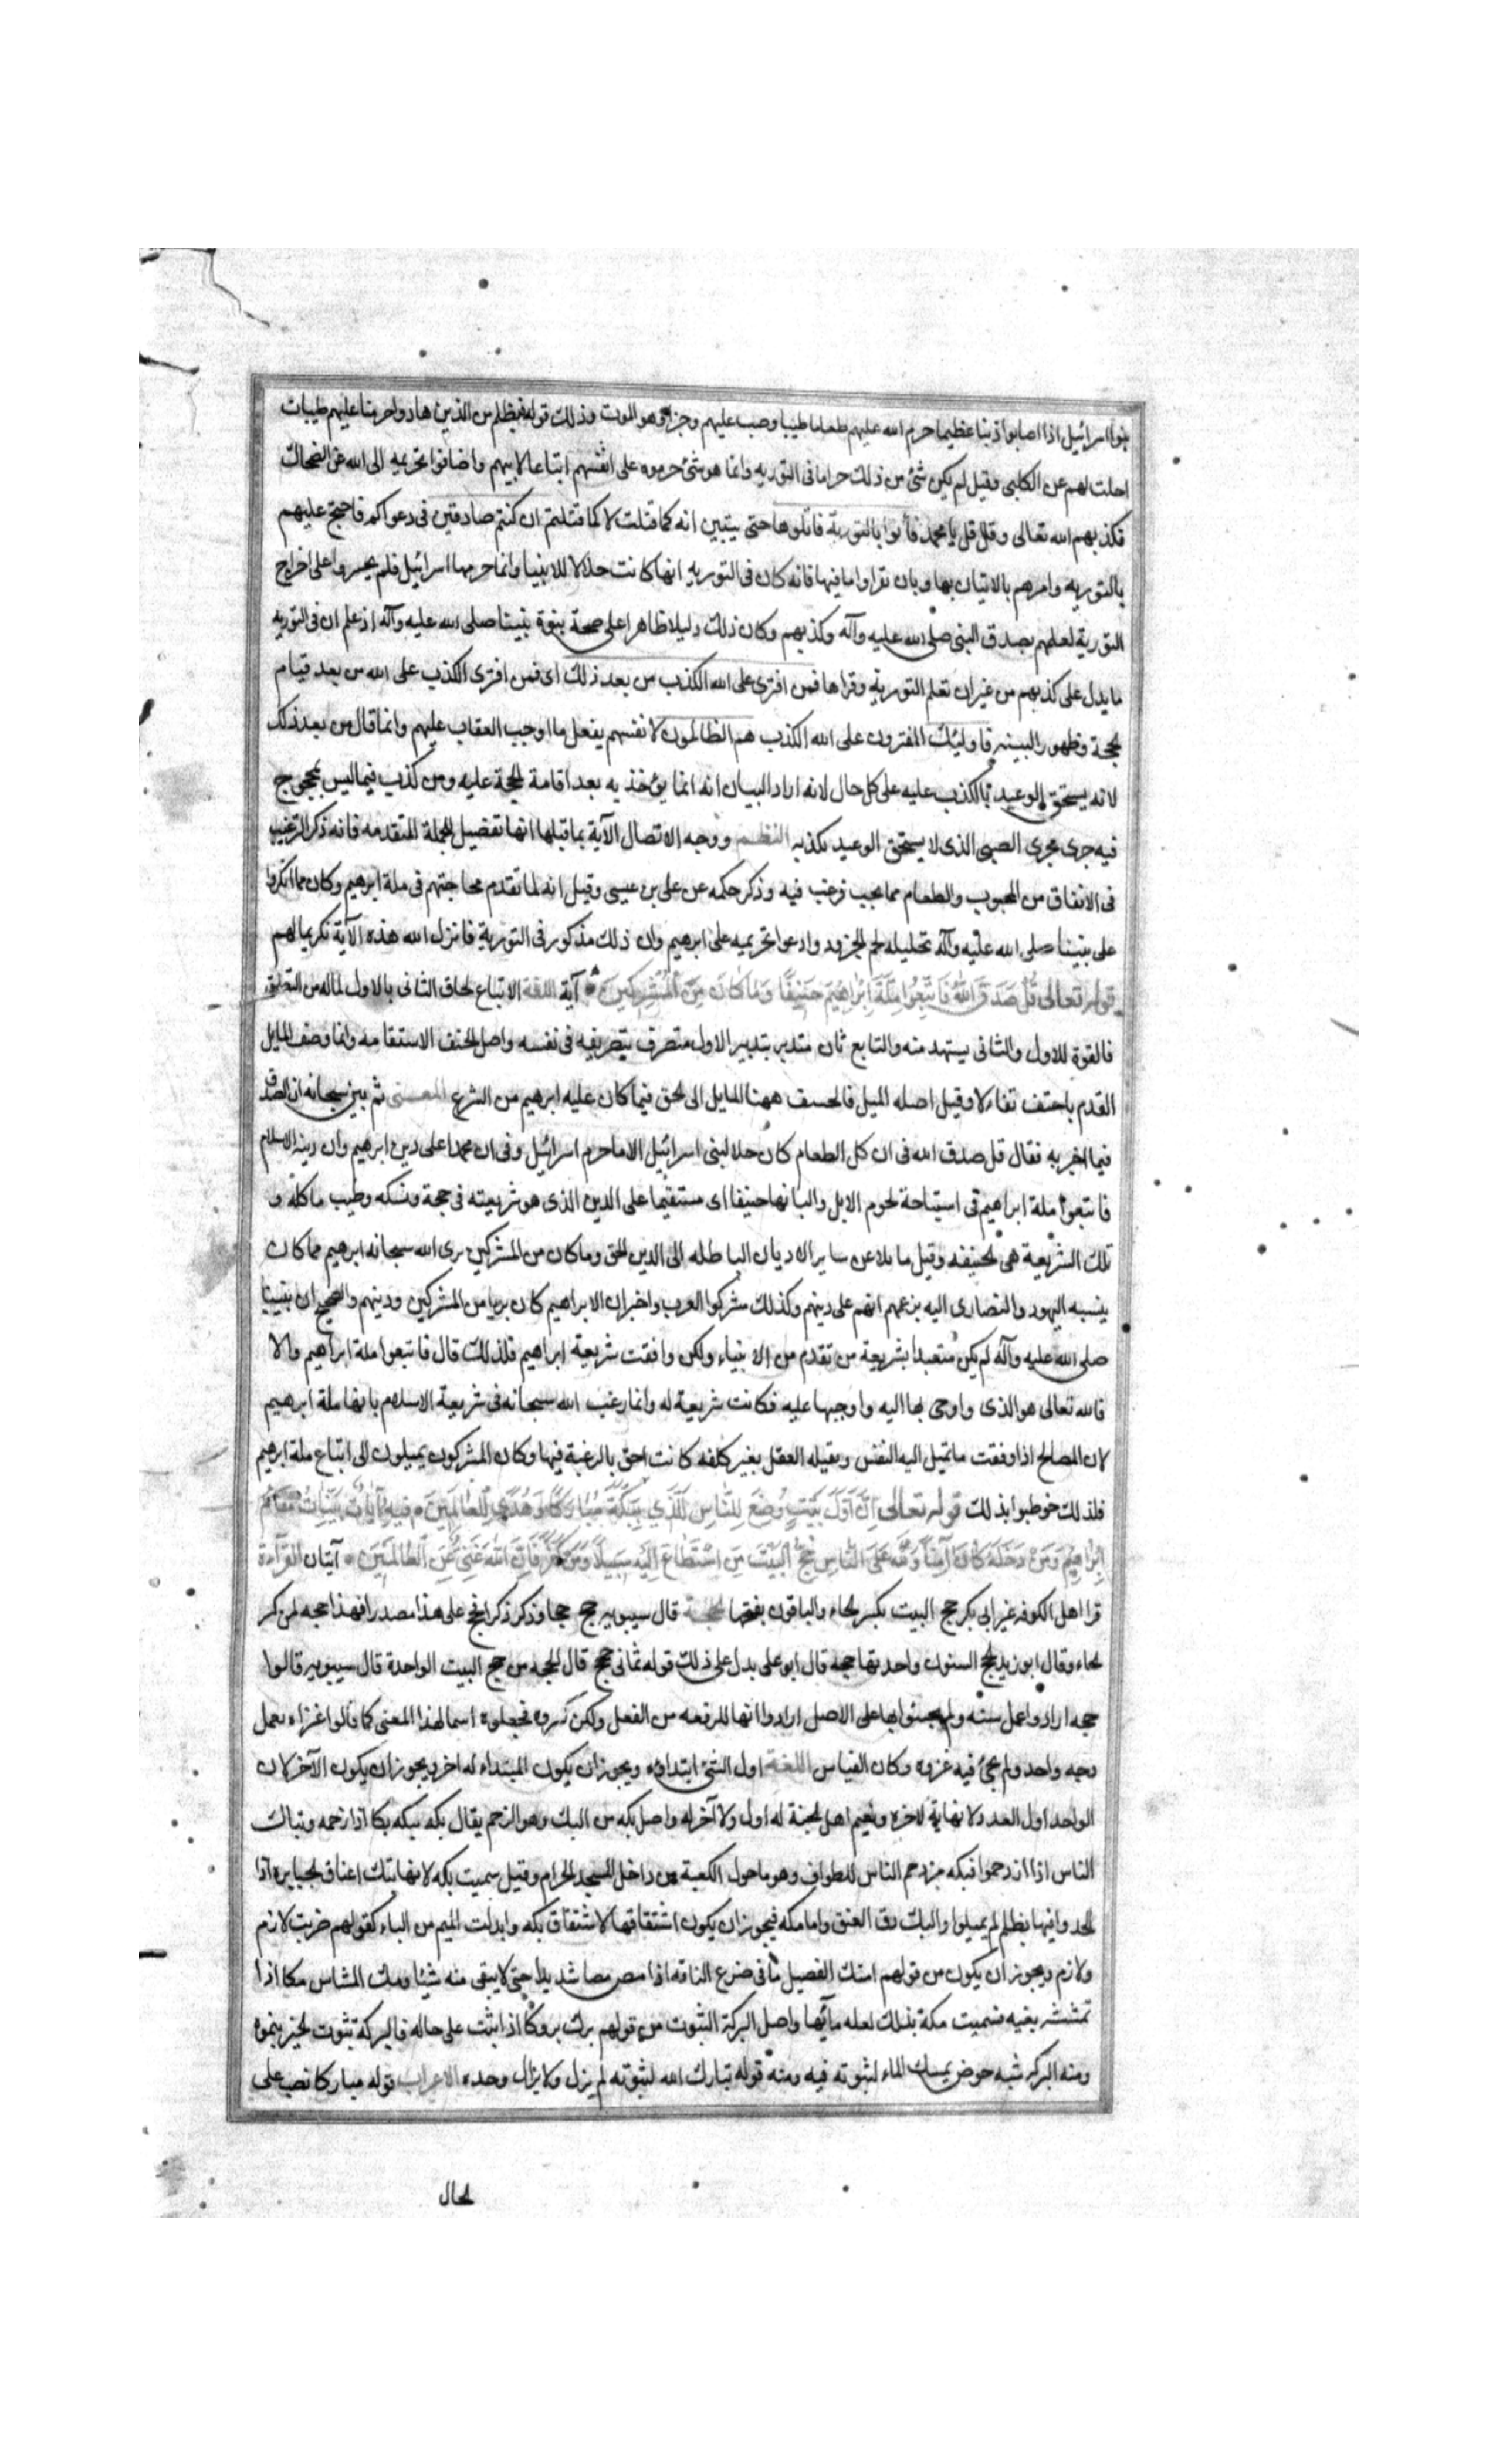 بنوا اسرائيل اذا اصابوا ذنبا عظيما حرم الله عليهم طعاما طيبا وصب عليهم وجزا وهو الموت وذلك قوله فبظلم من الذين هادوا حرمنا عليهم طيبات
احلت لهم عن الكلبى وقيل لم يكن شئ من ذلك حراما فى التوريه وانما هو شئ حرموه على انفسهم اتباعا لابيهم واضافوا تحريمه الى الله عن الضحاك
فكذبهم الله تعالى وقال قل يا محمد فأتوا بالتورية فاتلوها حتى يتبين انه كما قلت لا كما قلتم ان كنتم صادقين فى دعواكم فاحتج عليهم
بالتوريه وامرهم بالاتيان بها وبان يقراوا ما فيها فانه كان فى التوريه انها كانت حلالا للانبيا وانما حرمها اسرائيل فلم يجسروا على اخراج
التورية لعلمهم بصدق النبى صلى الله عليه وآله وكذبهم وكان ذلك دليلا ظاهرا على صحة بنوة نبينا صلى الله عليه وآله اذ علم ان فى التوريه
ما يدل على كذبهم من غير ان تعلم التورية وقراها فمن افترى على الله الكذب من بعد ذلك اى فمن افترى الكذب على الله من بعد قيام
لحجة وظهور البينه فاولئك المفترون على الله الكذب هم الظالمون لانفسهم بفعل ما اوجب العقاب عليهم وانما قال من بعد ذلك
لانه يستحق الوعيد بالكذب عليه على كل حال لانه اراد البيان انه انما يؤخذ به بعد اقامة لحجة عليه ومن كذب فيما ليس بمحجوج
فيه جرى مجرى الصبى الذى لا يستحق الوعيد بكذبه النظم ووجه الاتصال الآية بما قبلها انها تفضيل لجملة المتقدمه فانه ذكر الترغيب
فى الانفاق من المحبوب والطعام مما يحب فرغب فيه وذكر حكمه عن على بن عيسى وقيل انه لما تقدم محاجتهم فى ملة ابرهيم وكان مما انكروا
على نبينا صلى الله عليه وآله تحليله لحم الجزور وادعوا تحريمه على ابرهيم وان ذلك مذكور فى التورية فانزل الله هذه الآية تكريما لهم
قوله تعالى قُلْ صَدَقَ اللّهُ فَاتَّبِعُوا مِلَّةَ اِبْرَاهِيمَ حَنِيفًا وَمَا كَانَ مِنَ الْمُشْرِكِينَ آية اللغة الاتباع لحاق الثانى بالاول لماله من التعلق
فالقوة للاول والثانى يستمد منه والتابع ثان متدبر بتدبير الاول متصرف بتصريفه فى نفسه واصل الحنف الاستقامه وانما وصف المايل
القدم باحنف تفاءلا وقيل اصله الميل فالحنيف ههنا المايل الى لحق فيما كان عليه ابرهيم من الشرع المعنى ثم بين سبحانه ان الصدق
فيما اخبر به فقال قل صدق الله فى ان كل الطعام كان حلا لبنى اسرائيل الا ما حرم اسرائيل وفى ان محمدا على دين ابرهيم وان دينه الاسلام
فاتبعوا ملة ابراهيم فى استباحة لحوم الابل والبانها حنيفا اى مستقيما على الدين الذى هو شريعته فى حجة ونسكه وطيب ماكله و
تلك الشريعة هى لحنيفه وقيل مايلا عن ساير الاديان الباطله الى الدين الحق وما كان من المشركين برى الله سبحانه ابرهيم مما كان
ينسبه اليهود والنصارى اليه بزعمهم انهم على دينهم وكذلك مشركوا العرب واخبر ان الابراهيم كان بريا من المشركين ودينهم والصحيح ان نبينا
صلى الله عليه وآله لم يكن متعبدا بشريعة من تقدم من الانبياء ولكن وافقت شريعة ابراهيم فلذلك قال فاتبعوا ملة ابراهيم والا
فالله تعالى هو الذى واوحى بها اليه واوجبها عليه فكانت شريعة له وانما رغب الله سبحانه فى شريعة الاسلام بانها ملة ابرهيم
لان المصالح اذا وفقت ما تميل اليه النفس ويقبله العقل بغير كلفه كانت احق بالرغبة فيها وكان المشركون يميلون الى اتباع ملة ابرهيم
فلذلك خوطبوا بذلك قوله تعالى اِنَّ اَوَّلَ بَيْتٍ وُضِعَ لِلنَّاسِ لَلَّذِي بِبَكَّةَ مُبَارَكًا وَهُدًى لِلْعَالَمِينَ فِيهِ آيَاتٌ بَيِّنَاتٌ مَقَامُ
اِبْرَاهِيمَ وَمَنْ دَخَلَهُ كَانَ آمِنًا وَلِلّهِ عَلَى النَّاسِ حِجُّ الْبَيْتِ مَنِ اسْتَطَاعَ اِلَيْهِ سَبِيلًا وَمَنْ كَفَرَ فَاِنَّ اللهَ غَنِىٌّ عَنِ الْعَالَمِينَ آيتان القراءة
قرا اهل الكوفه غير ابى بكر حج البيت بكسر لحاء والباقون بفتحها لحجة قال سيبويه حج حجا وذكر ذكرا فحج على هذا مصدر افهذا حجه لمن كسر
لحاء وقال ابو زيد لحج السنون واحدتها حجة قال ابو على يدل على ذلك قوله ثمانى حجج قال لحجه من حج البيت الواحدة قال سيبويه قالوا
حجه ارادوا عمل سنه ولم يجيئوا بها على الاصل ارادوا انها للرفعه من الفعل ولكن كسروه فجعلوه اسما لهذا المعنى كما قالوا غزاه لعمل
وجه واحد ولم يجئ فيه غزوه وكان القياس اللغة اول الشئ ابتداوه ويجوز ان يكون المبتداء له اخر ويجوز ان يكون الآخر لان
الواحد اول العدد ولا نهاية لاخره ونعيم اهل لجنة له اول ولا آخر له واصل بكه من البك وهو الزحم يقال بكه يبكه بكا اذا زحمه وتباك
الناس اذا ازدحموا فبكه مزدحم الناس للطواف وهو ما حول الكعبة من داخل المسجد الحرام وقيل سميت بكه لانها تبك اعناق لجبابرة اذا
لحدوا فيها بظلم لم يميلوا والبك دق العنق واما مكه فيجوز ان يكون اشتقاقها لاشتقاق بكه وابدلت الميم من الباء كقولهم ضربت لازم
ولازم ويجوز ان يكون من قولهم امتك الفصيل ما فى ضرع الناقه اذا مص مصا شديدا حتى لا يبقى منه شيئا ومك المشاش مكا اذا
تمشش بفيه فسميت مكة بذلك لعله مآئها واصل البركة الثبوت من قولهم برك بروكا اذا ثبت على حاله فالبركة ثبوت لخير بنموه
ومنه البركه شبه حوض يمسك الماء لثبوته فيه ومنه قوله تبارك الله لثبوته لم يزل ولا يزال وحده الاعراب قوله مباركا نصب على
لحال